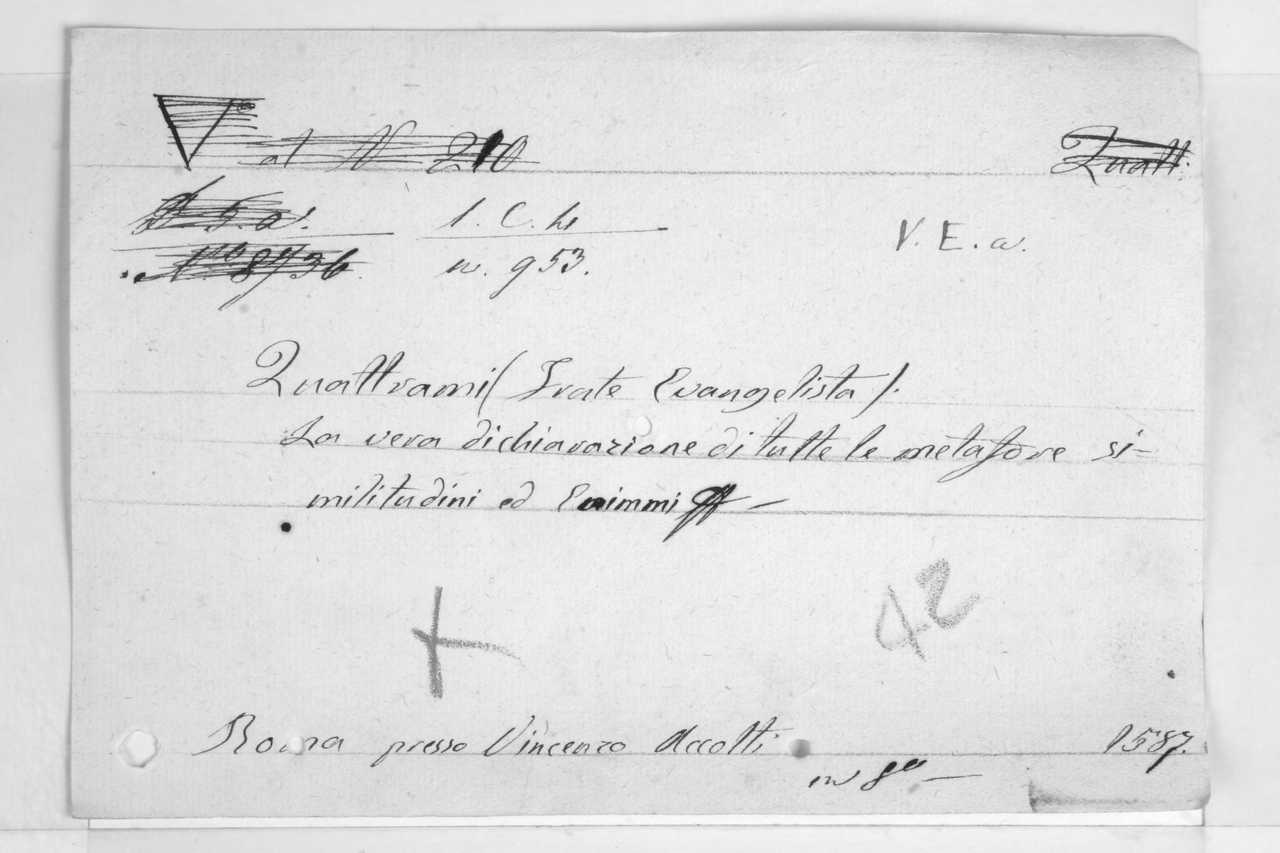 al N 210
Quatt.
S. a. 1. C. 4
V. E. a.
Nº 8736 n. 953.
Quattrami (Frate Evangelista).
La vera dichiarazione di tutte le metafore si-
militudini ed Enimmi
42
Roma presso Vincenzo Accolti 1587.
in 8º —